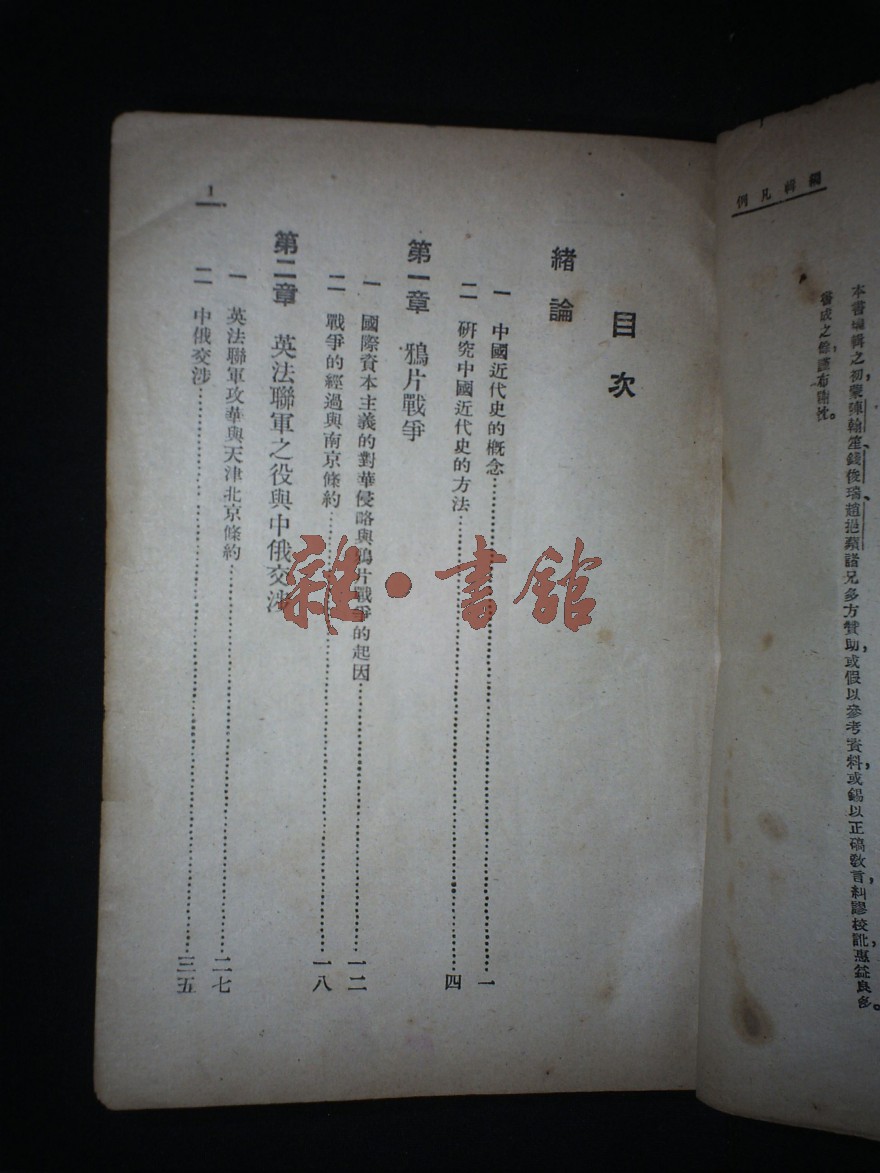 編輯凡例
本書編輯之初,蒙陳翰笙、錢俊瑞、趙挹蘋諸兄多方贊助,或假以參考資料,或錫以正確教言,糾謬校訛,惠益良多。
書成之餘,謹布謝忱。
1
目次
緒論
一 中國近代史的概念……一
二 研究中國近代史的方法……四
第一章 鴉片戰爭
一 國際資本主義的對華侵略與鴉片戰爭的起因……一二
二 戰爭的經過與南京條約……一八
第二章 英法聯軍之役與中俄交涉
一 英法聯軍攻華與天津北京條約……二七
二 中俄交涉……三五
雜·書館